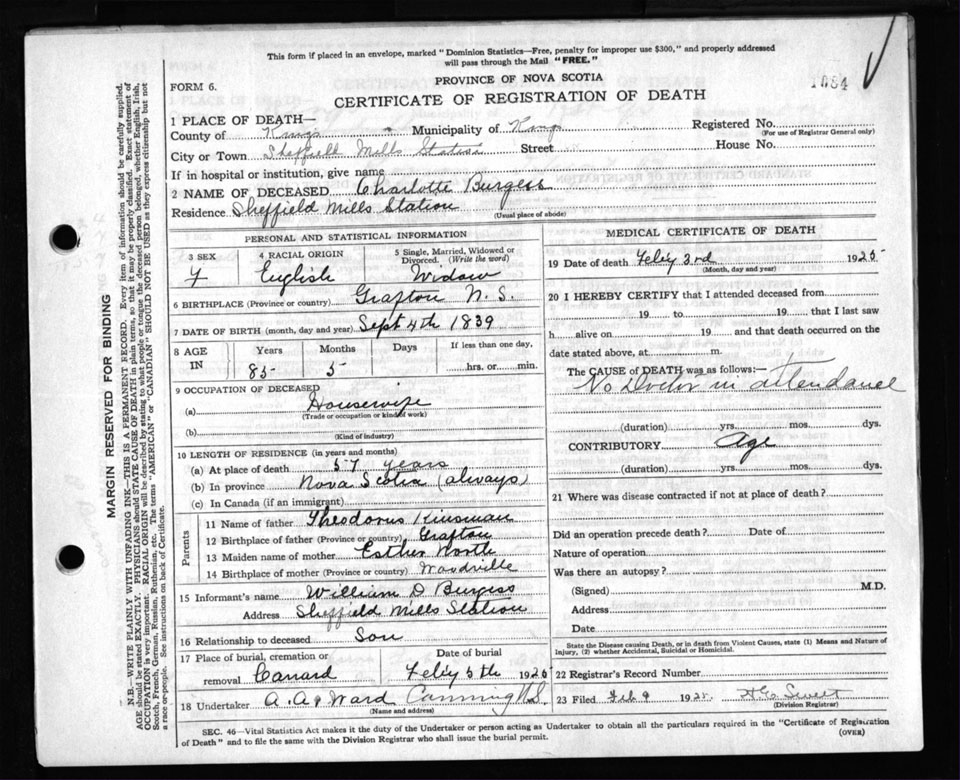 This form if placed in an envelope, marked "Dominion Statistics—Free, penalty for improper use $300," and properly addressed
will pass through the Mail "FREE."
1084
FORM 6.
PROVINCE OF NOVA SCOTIA
CERTIFICATE OF REGISTRATION OF DEATH
1 PLACE OF DEATH—
County of Kings Municipality of Kings Registered No.
(For use of Registrar General only)
City or Town Sheffield Mills Station Street House No.
If in hospital or institution, give name
2 NAME OF DECEASED Charlotte Burgess
Residence Sheffield Mills Station
(Usual place of abode)
PERSONAL AND STATISTICAL INFORMATION
3 SEX 4 RACIAL ORIGIN 5 Single, Married, Widowed or Divorced. (Write the word)
F English Widow
6 BIRTHPLACE (Province or country) Grafton N. S.
7 DATE OF BIRTH (month, day and year) Sept 4th 1839
8 AGE IN Years Months Days If less than one day,
85 5 hrs. or min.
9 OCCUPATION OF DECEASED
(a) Housewife
(Trade or occupation or kind of work)
(b)
(Kind of industry)
10 LENGTH OF RESIDENCE (in years and months)
(a) At place of death 57 years
(b) In province Nova Scotia (always)
(c) In Canada (if an immigrant)
Parents
11 Name of father Theodorus Kinsman
12 Birthplace of father (Province or country) Grafton
13 Maiden name of mother Esther North
14 Birthplace of mother (Province or country) Woodville
15 Informant's name William D Burgess
Address Sheffield Mills Station
16 Relationship to deceased Son
17 Place of burial, cremation or removal Canard Date of burial Feby 5th 1925
18 Undertaker A. A. Ward Canning N.S.
(Name and address)
MEDICAL CERTIFICATE OF DEATH
19 Date of death Feby 3rd 1925
(Month, day and year)
20 I HEREBY CERTIFY that I attended deceased from
19 to 19 that I last saw
h alive on 19 and that death occurred on the
date stated above, at m.
The CAUSE OF DEATH was as follows:—
No Doctor in attendance
(duration) yrs. mos. dys.
CONTRIBUTORY Age
(duration) yrs. mos. dys.
21 Where was disease contracted if not at place of death?
Did an operation precede death? Date of
Nature of operation
Was there an autopsy?
(Signed) M.D.
Address
Date
State the Disease causing Death, or in death from Violent Causes, state (1) Means and Nature of
Injury, (2) whether Accidental, Suicidal or Homicidal.
22 Registrar's Record Number
23 Filed Feb 9 1925. Sweet
(Division Registrar)
SEC. 46—Vital Statistics Act makes it the duty of the Undertaker or person acting as Undertaker to obtain all the particulars required in the "Certificate of Registration
of Death" and to file the same with the Division Registrar who shall issue the burial permit.
(OVER)
MARGIN RESERVED FOR BINDING
N.B.—WRITE PLAINLY WITH UNFADING INK—THIS IS A PERMANENT RECORD. Every item of information should be carefully supplied.
AGE should be stated EXACTLY. PHYSICIANS should STATE CAUSE OF DEATH in plain terms, so that it may be properly classified. Exact statement of
OCCUPATION is very important. RACIAL ORIGIN will be described by stating to what people or tongue the deceased person belonged, whether English, Irish,
Scotch, French, German, Russian, Ruthenian, etc. The terms "AMERICAN" or "CANADIAN" SHOULD NOT BE USED as they express citizenship but not
a race or people. See instructions on back of Certificate.